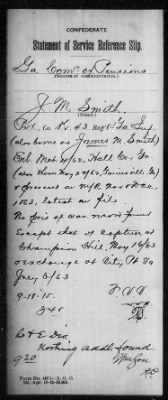 CONFEDERATE
Statement of Service Reference Slip.
Ga. Com'r of Pensions
(Source of communication.)
J. M. Smith
(Name.)
Pvt. Co. A, 43 Regt Ga. Inf
(also borne as James M. Smith)
Enl. Mch 10/62, Hall Co. Ga
(also shown May 2/62, Gainesville Ga)
present on M/R Nov & Dec
1863, latest on file.
No pris of war record found
Except that of capture at
Champion Hill, May 16/63
exchange at City Pt Va
July 3/63
9-18-15.
3:45
R & E Div.
Nothing addl found
9/20
Form No.